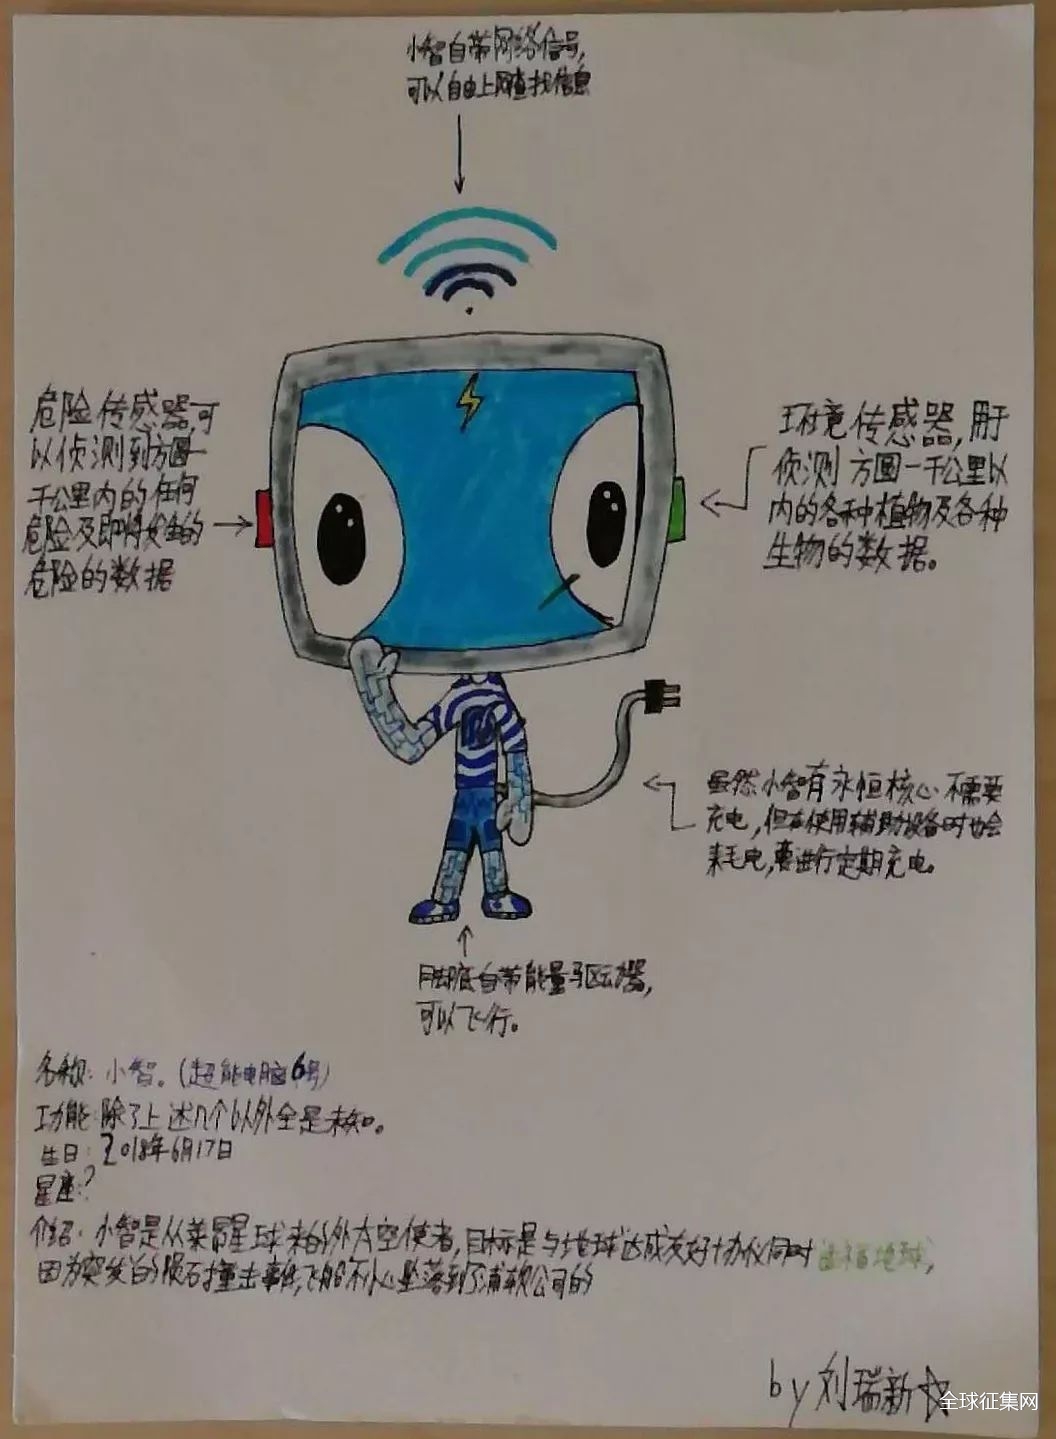 小智自带网络信号,
可以自由上网查找信息
危险传感器,可
以侦测到方圆一
千公里内的任何
危险及即将发生的
危险的数据
环境传感器,用于
侦测方圆一千公里以
内的各种植物及各种
生物的数据。
虽然小智有永恒核心不需要
充电,但在使用辅助设备时也会
耗电,要进行定期充电。
脚底自带能量驱动器,
可以飞行。
名称:小智。(超能电脑6号)
功能:除了上述几个以外全是未知。
生日:2018年6月17日
星座:?
介绍:小智是从莱昂星球来的外太空使者,目标是与地球达成友好协议同时造福地球,
因为突发的陨石撞击事件,飞船不小心坠落到了浦软公司的
by刘瑞新
全球征集网